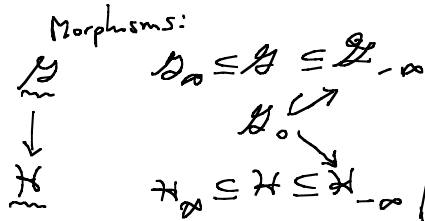 Morphisms:
𝒢 𝒢_∞ ⊆ 𝒢 ⊆ 𝒢_-∞
↓ 𝒢_0
ℋ ℋ_∞ ⊆ ℋ ⊆ ℋ_-∞